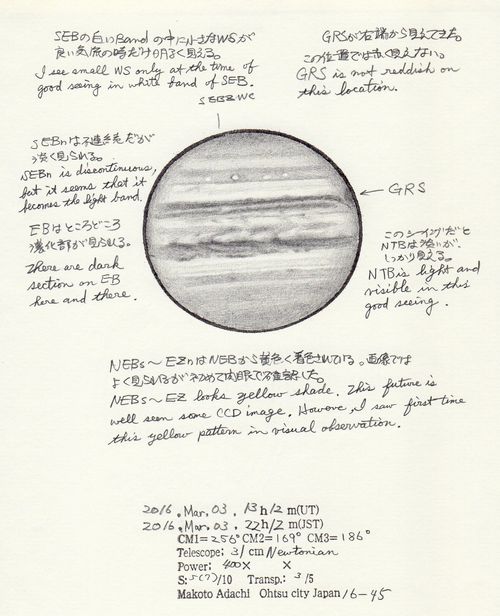 SEBの白いBandの中に小さなWSが
良い気流の時だけ明るく見える。
I see small WS only at the time of
good seeing in white band of SEB.
SEBZ WC
GRSが右端から見えてきた。
この位置では赤く見えない。
GRS is not reddish on
this location.
SEBnは不連続だが
淡く見られる。
SEBn is discontinuous,
but it seems that it
becomes the light band.
← GRS
EBはところどころ
濃化部が見られる。
There are dark
section on EB
here and there.
このシーイングだと
NTBは淡いが、
しっかり見える。
NTB is light and
visible in this
good seeing.
NEBs～EZnはNEBから黄色く着色されている。画像では
よく見られるが初めて肉眼で確認した。
NEBs～EZ looks yellow shade. This future is
well seen some CCD image. Howevre, I saw first time
this yellow pattern in visual observation.
2016. Mar. 03. 13h12m(UT)
2016. Mar. 03. 22h12m(JST)
CM1=256° CM2=169° CM3=186°
Telescope: 31 cm Newtonian
Power: 400× ×
S: 5(7)/10 Transp.: 3/5
Makoto Adachi Ohtsu city Japan 16-45